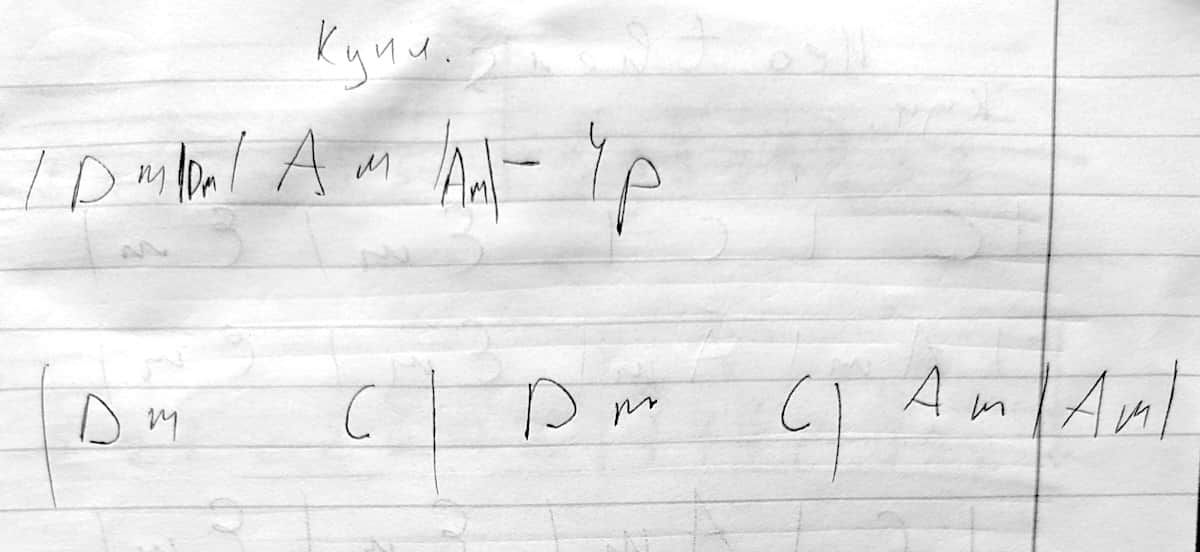 Купл.
/ Dm | Dm / Am / Am | - 4 р
| Dm C | Dm C | Am | Am |